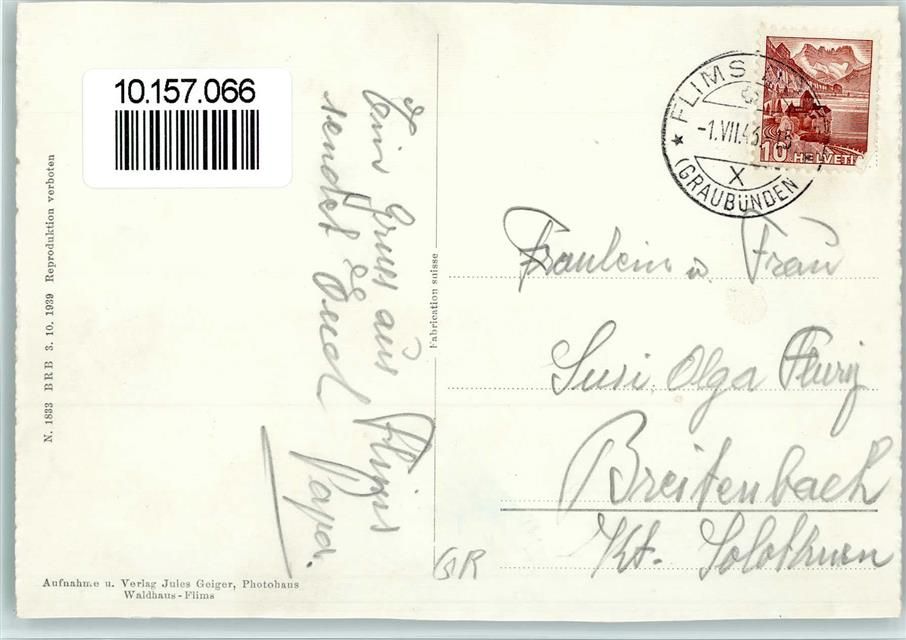 10.157.066
N. 1833 BRB 3. 10. 1939 Reproduktion verboten
Ein Gruss aus Flims
sendet Euch
Papa.
Aufnahme u. Verlag Jules Geiger, Photohaus
Waldhaus-Flims
Fabrication suisse
FLIMS
-1.VII.43
X
(GRAUBÜNDEN
10 HELVETIA
Fraulein u Frau
Susi, Olga Flury
Breitenbach
Kt. Solothurn
GR